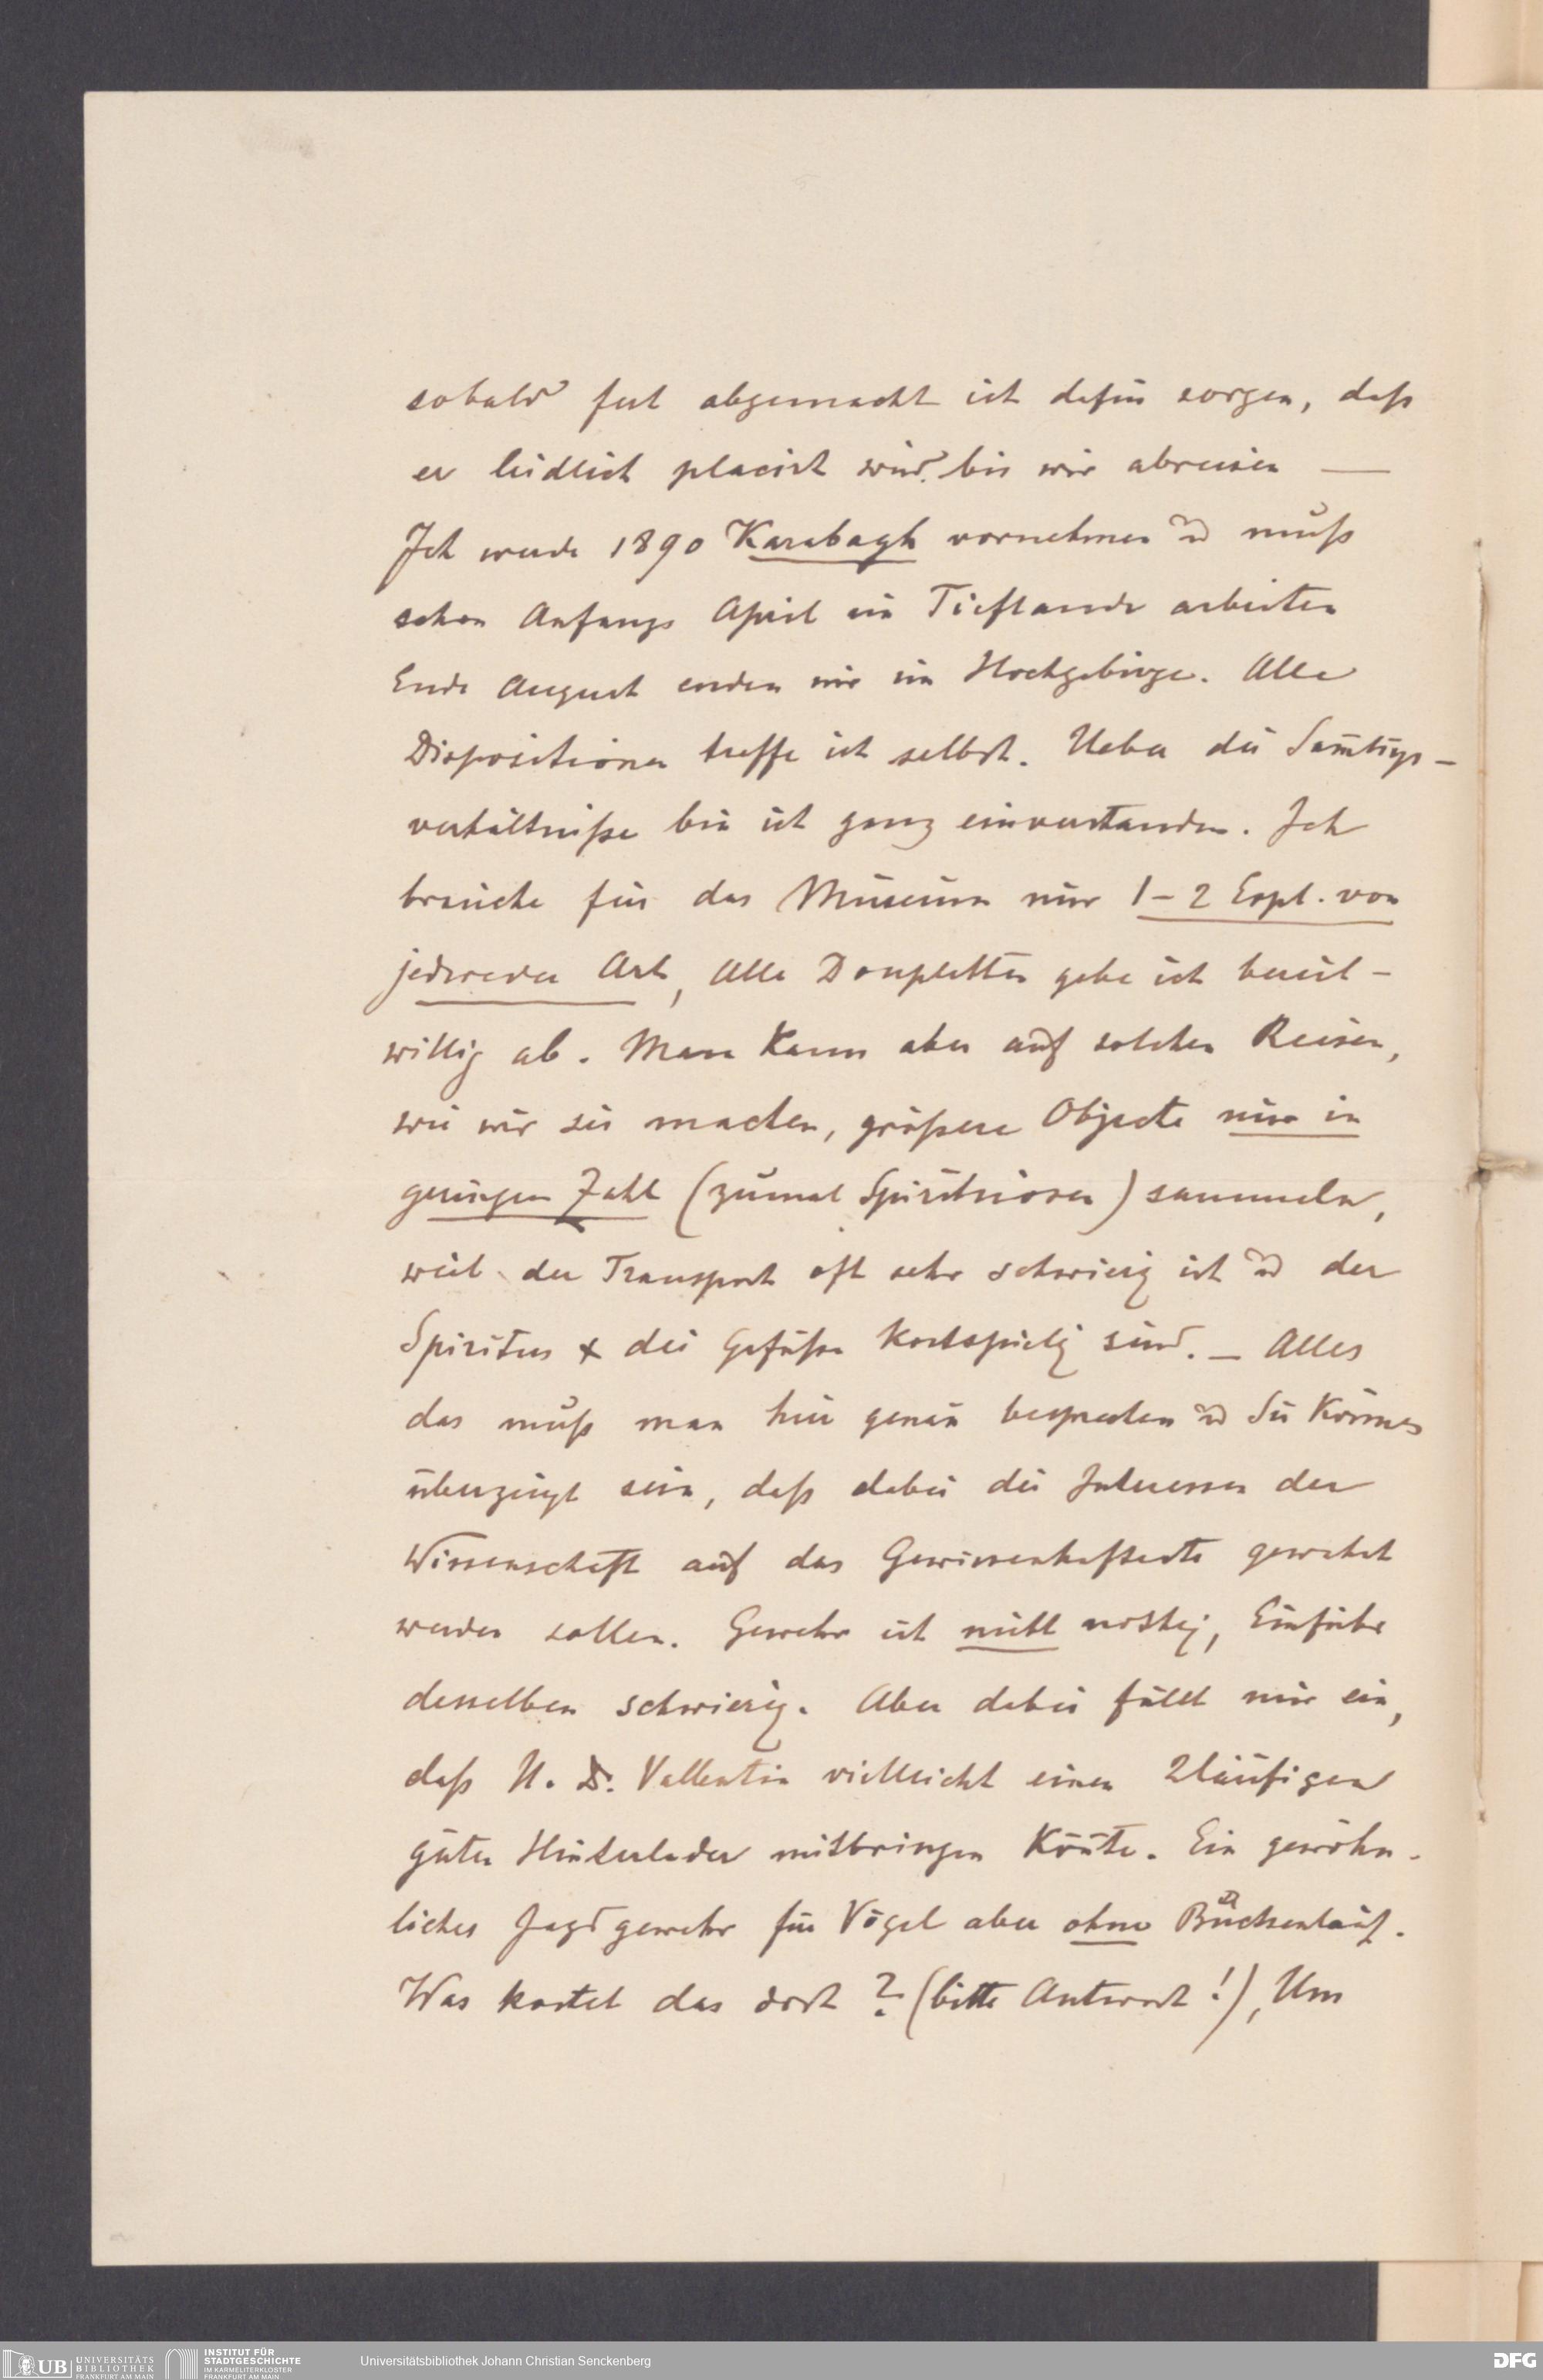 sobald fest abgemacht ich dafür sorgen, daß
er leidlich placirt wird. bis wir abreisen —
Ich werde 1890 Karabagh vornehmen u muß
schon Anfangs April im Tieflande arbeiten
Ende August enden wir im Hochgebirge. Alle
Dispositionen treffe ich selbst. Ueber die Sam̄lungs-
verhältniße bin ich ganz einverstanden. Ich
brauche für das Museum nur 1–2 Expl. von
jedweder Art, Alle Doupletten gebe ich bereit-
willig ab. Man kann aber auf solchen Reisen,
wie wir sie machen, größere Objecte nur in
geringer Zahl (zumal Spirituosen) sammeln,
weil der Transport oft sehr schwierig ist u der
Spiritus & die Gefäße kostspielig sind. — Alles
das muß man hier genau besprechen u Sie können
überzeugt sein, daß dabei die Interessen der
Wissenschaft auf das Gewissenhafteste gewahrt
werden sollen. Gewehr ist nicht nöthig, Einfuhr
desselben schwierig. Aber dabei fällt mir ein,
daß H. Dr. Vallentin vielleicht einen 2läufigen
guten Hinterlader mitbringen kön̄te. Ein gewöhn-
liches Jagdgewehr für Vögel aber ohne Büchsenlauf.
Was kostet das dort? (bitte Antwort!), Um
UB UNIVERSITÄTS
BIBLIOTHEK
FRANKFURT AM MAIN
INSTITUT FÜR
STADTGESCHICHTE
IM KARMELITERKLOSTER
FRANKFURT AM MAIN
Universitätsbibliothek Johann Christian Senckenberg
DFG